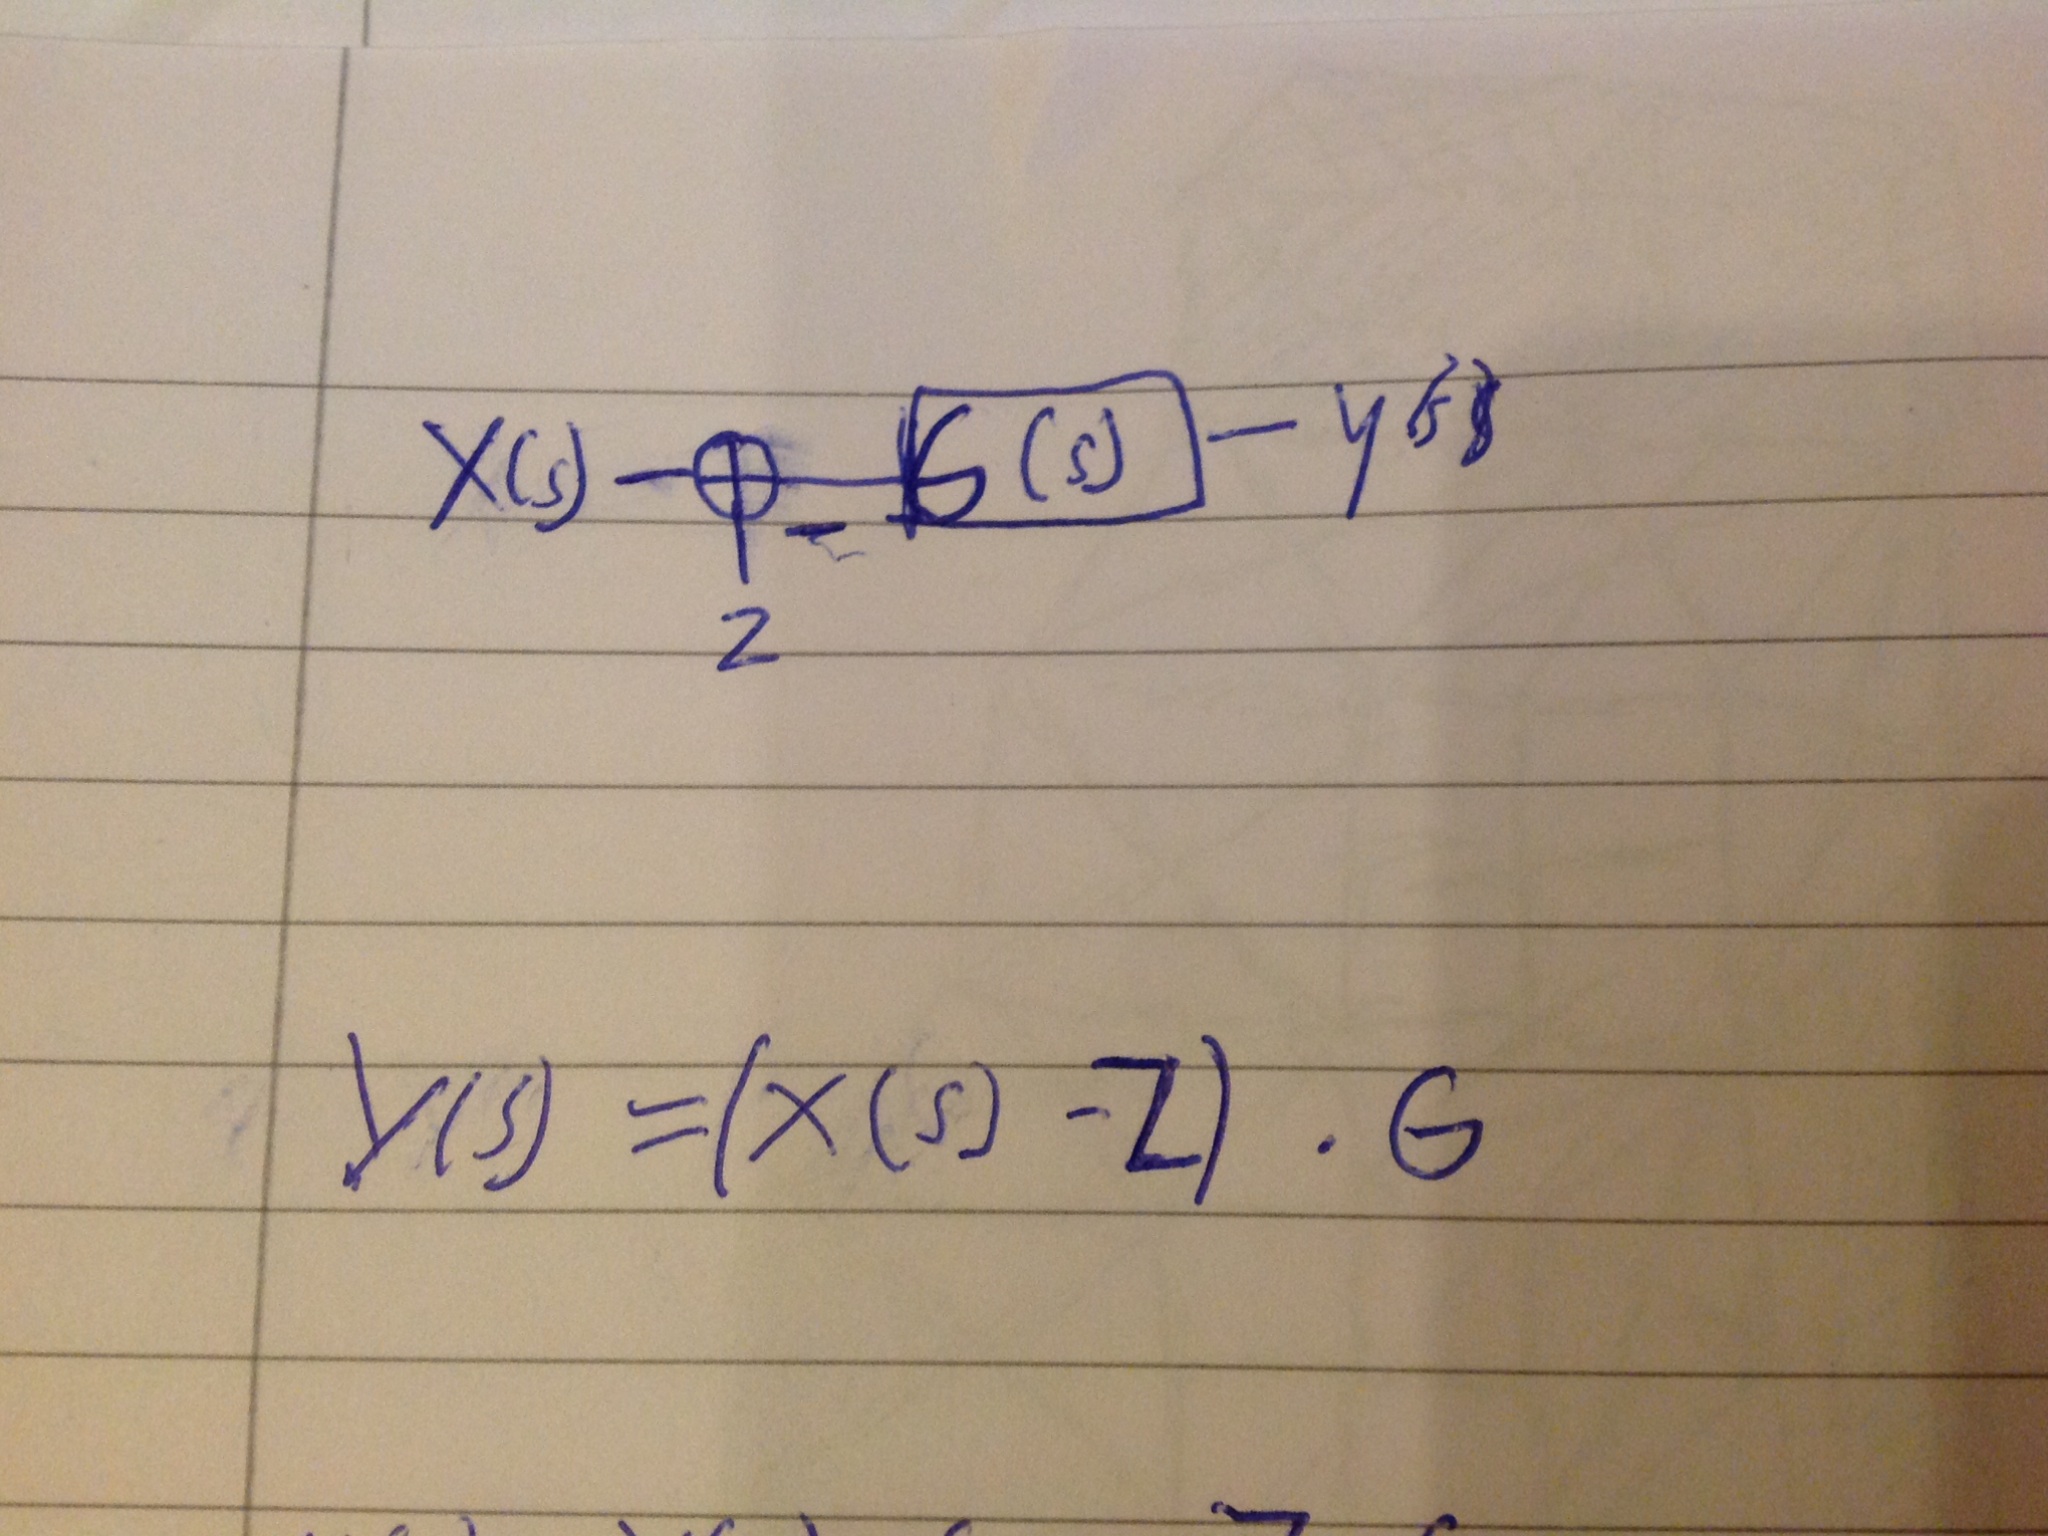 X(s) G(s) y(s)
-
Z
Y(s) = (X(s) - Z) . G